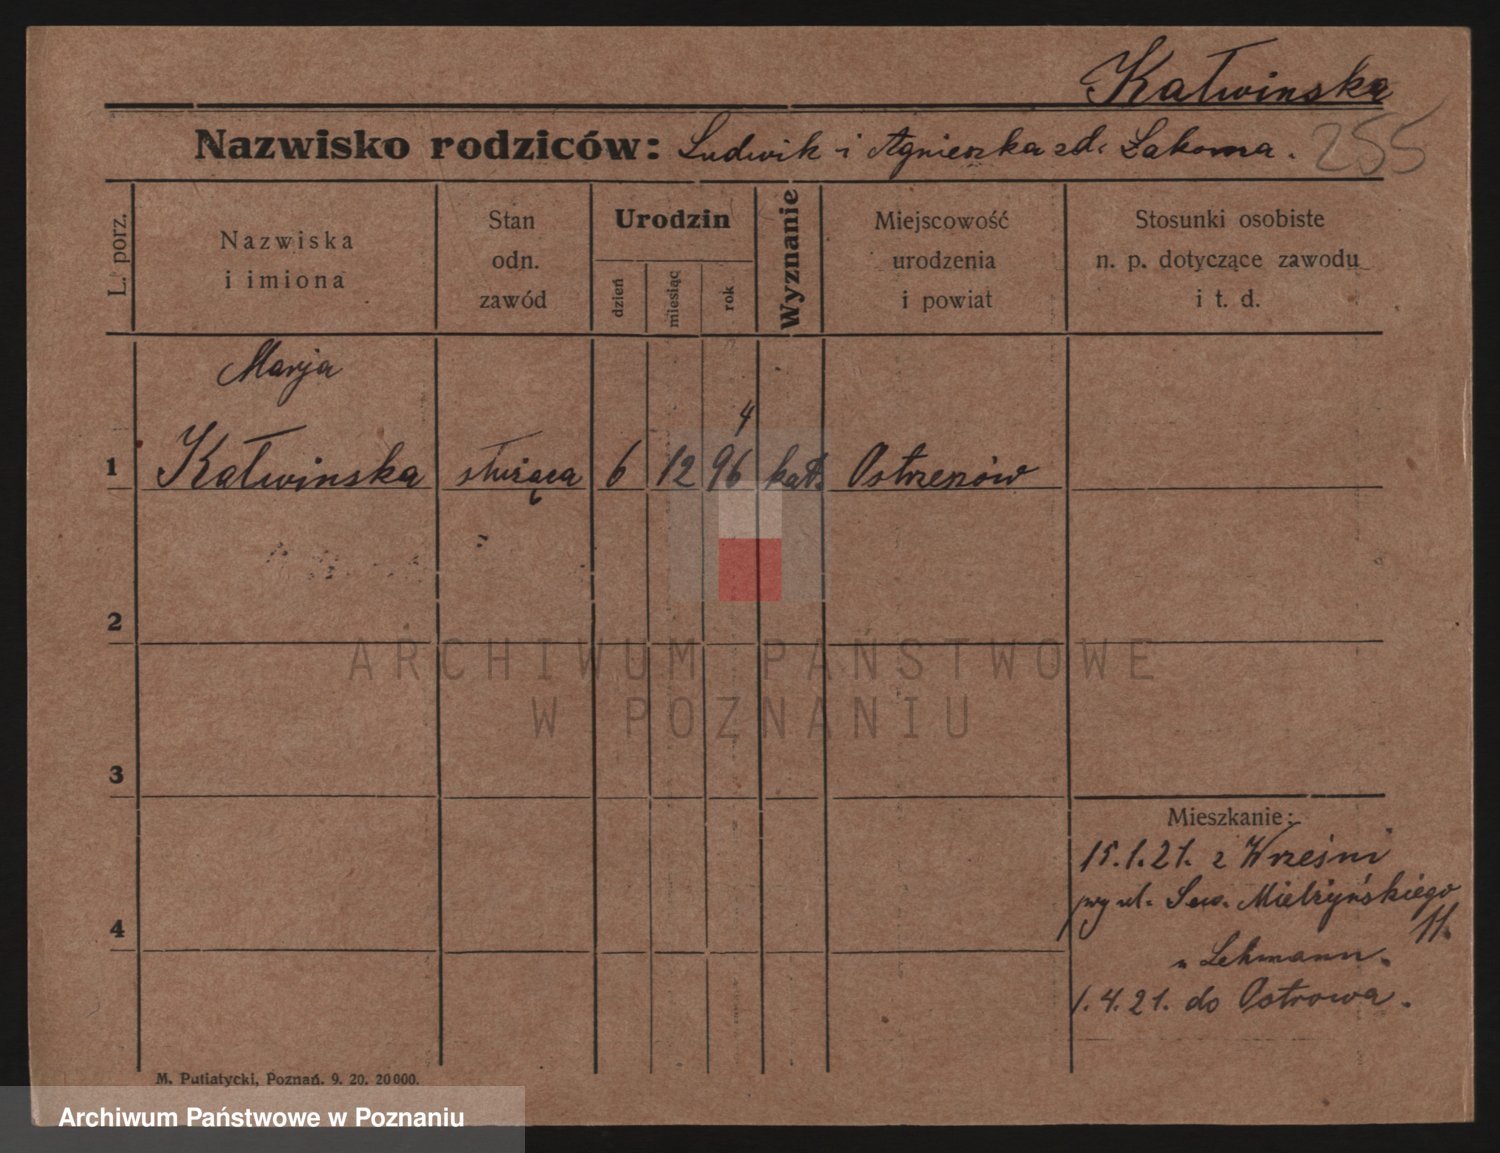 Kałwinska
Nazwisko rodziców: Ludwik i Agnieszka zd. Łakoma.
255
L. porz.
Nazwiska
i imiona
Stan
odn.
zawód
Urodzin
dzień
miesiąc
rok
Wyznanie
Miejscowość
urodzenia
i powiat
Stosunki osobiste
n. p. dotyczące zawodu
i t. d.
Marja
4
1 Kałwinska służąca 6 12 96 kat. Ostrzeszów
2
ARCHIWUM PAŃSTWOWE
W POZNANIU
3
Mieszkanie:
15.1.21. z Wrześni
przy ul. Sew. Mielżyńskiego
11.
4
u Lehmann.
1.4.21. do Ostrowa.
M. Putiatycki, Poznań. 9. 20. 20000.
Archiwum Państwowe w Poznaniu